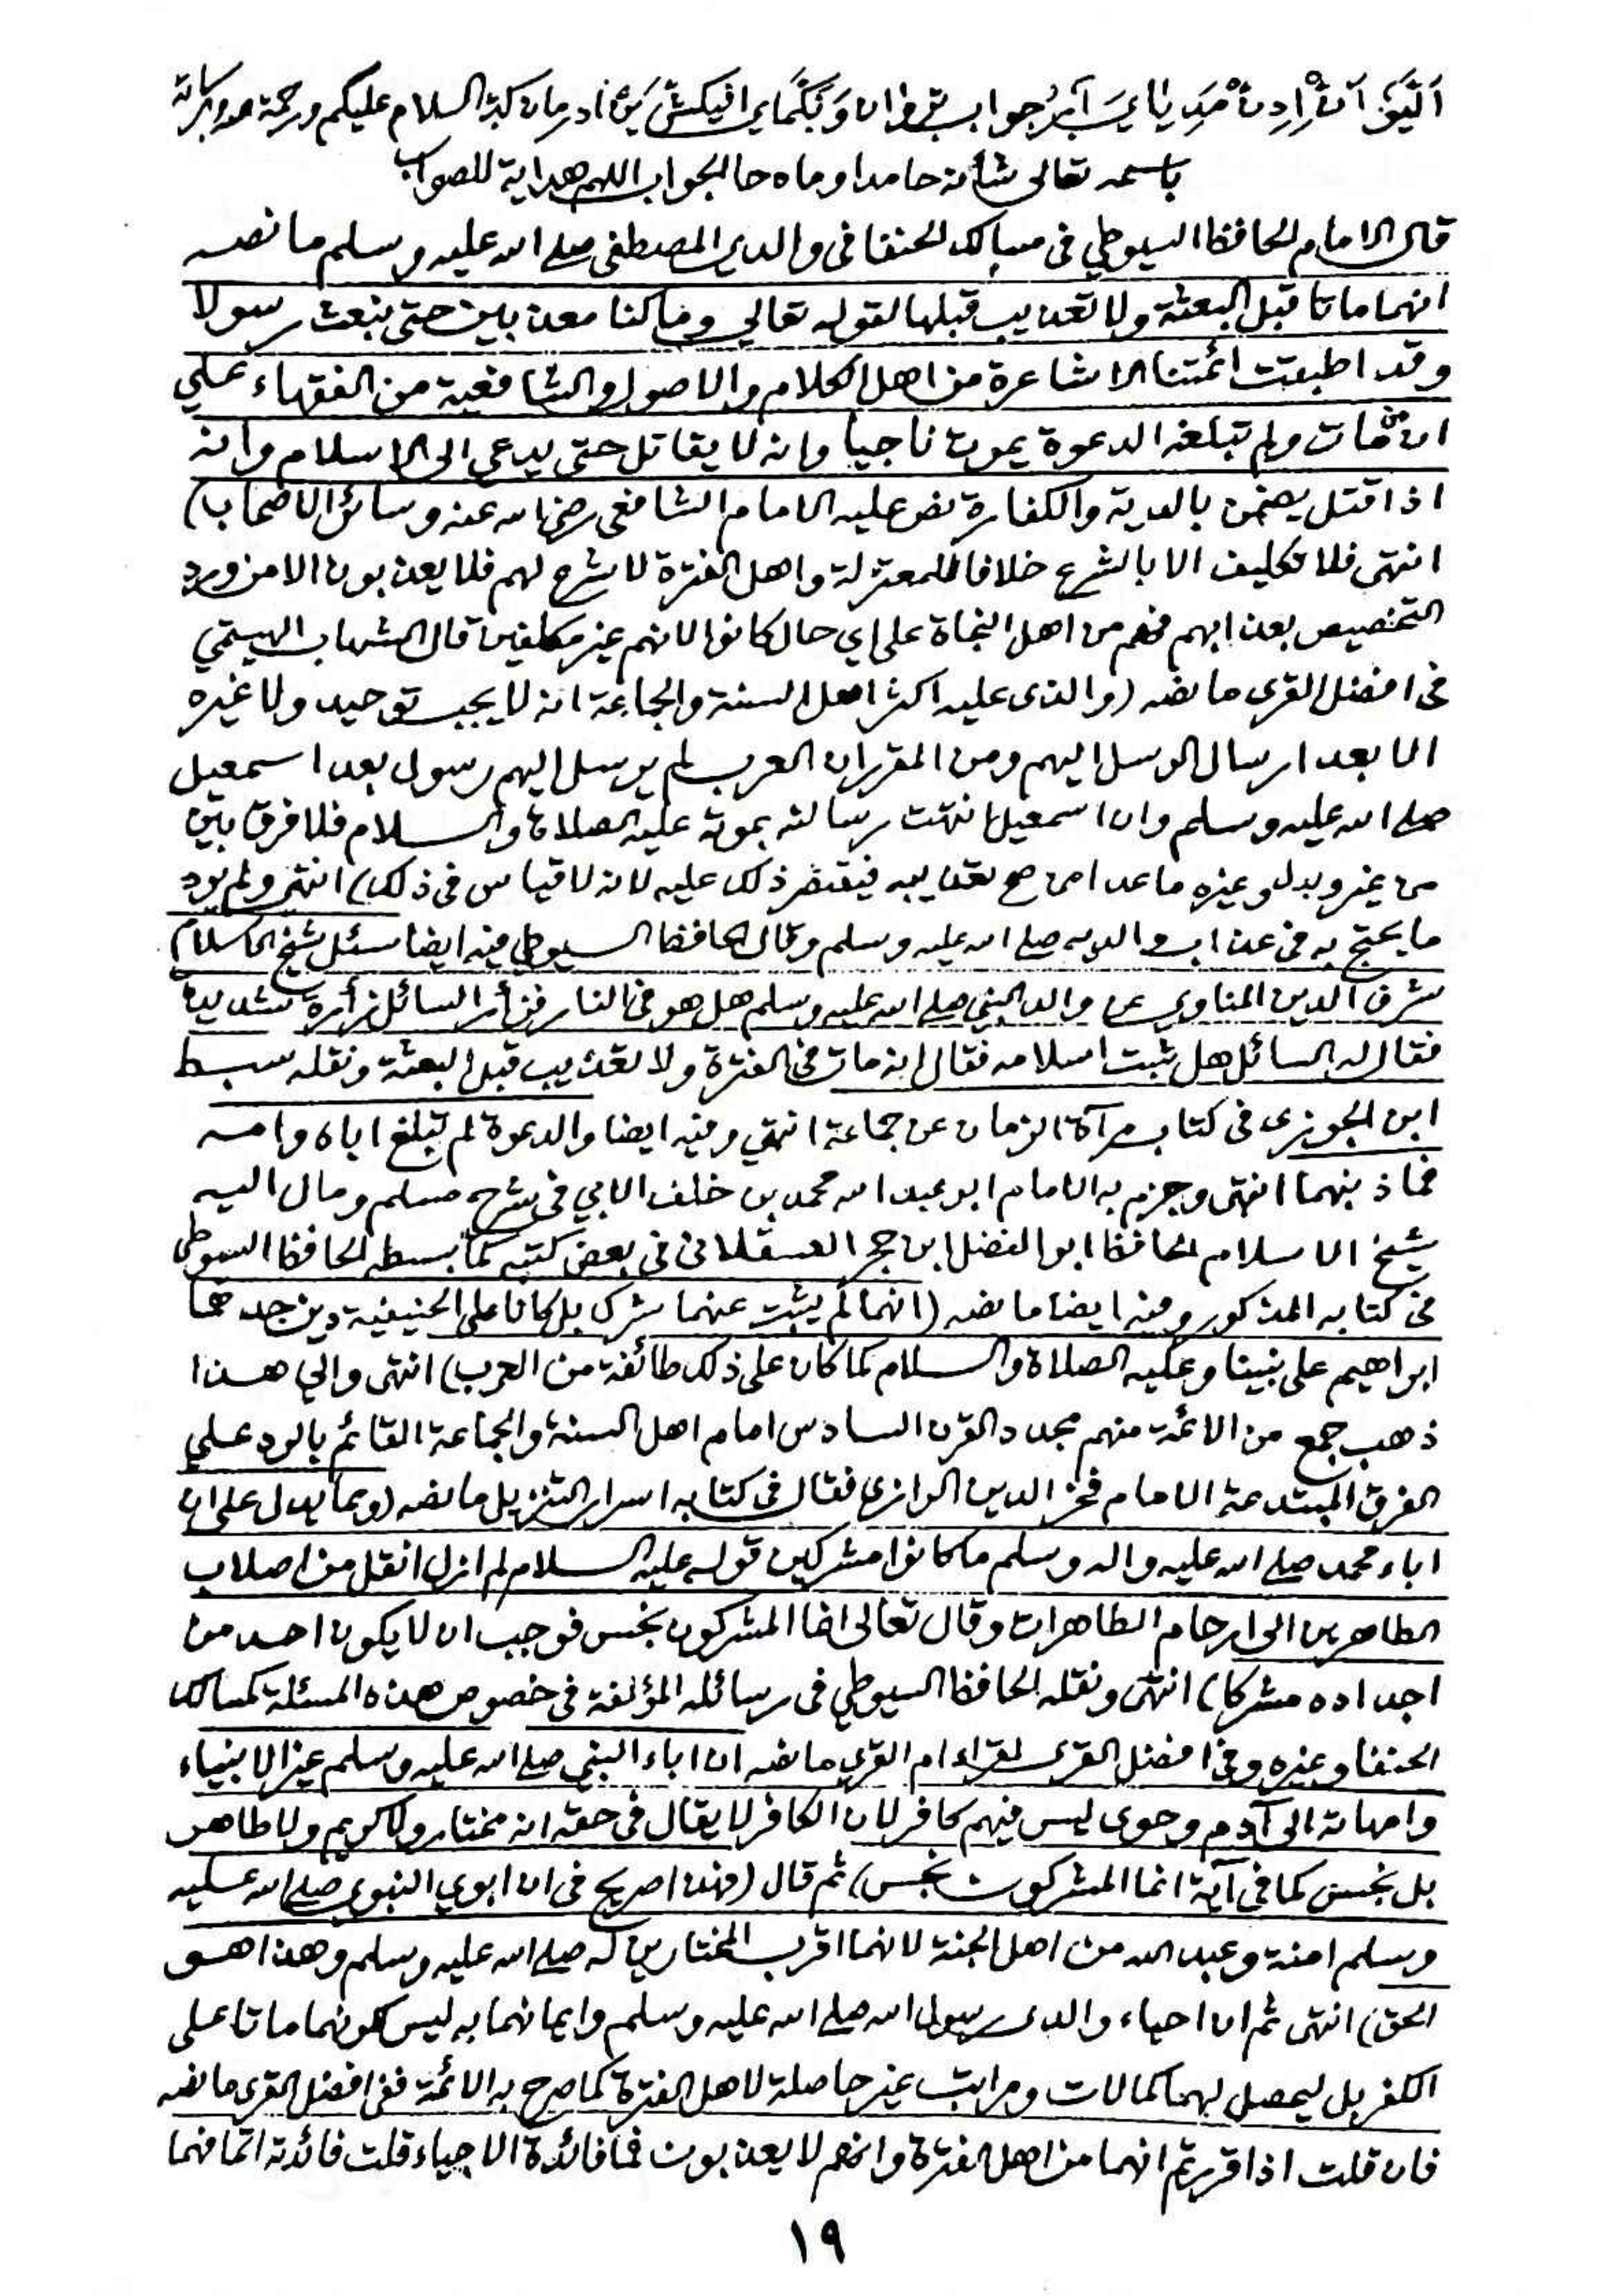 جواب السلام عليكم ورحمة الله وبركاته
باسمه تعالى شأنه حامدا وماد حا الجواب اللهم هداية للصواب
قال الامام الحافظ السيوطي في مسالك الحنفا في والدي المصطفى صلى الله عليه وسلم ما نصه
انهما ماتا قبل البعثة ولا تعذيب قبلها لقوله تعالى وما كنا معذبين حتى نبعث رسولا
وقد اطبقت ائمتنا الاشاعرة من اهل الكلام والاصول والشافعية من الفقهاء على
ان من مات ولم تبلغه الدعوة يموت ناجيا وانه لا يقاتل حتى يدعى الى الاسلام وانه
اذا قتل يضمن بالدية والكفارة نص عليه الامام الشافعي رضي الله عنه وسائر الاصحاب)
انتهى فلا تكليف الا بالشرع خلافا للمعتزلة واهل الفترة لا شرع لهم فلا يعذبون الا من ورد
التخصيص بعذابهم فهم من اهل النجاة على اي حال كانوا لانهم غير مكلفين قال الشهاب الهيتمي
في افضل القرى ما نصه (والذي عليه اكثر اهل السنة والجماعة انه لا يجب توحيد ولا غيره
الا بعد ارسال الرسل اليهم ومن المقرر ان العرب لم يرسل اليهم رسول بعد اسمعيل
صلى الله عليه وسلم وان اسمعيل انتهت رسالته بموته عليه الصلاة والسلام فلا فرق بين
من غير وبدل وغيره ما عدا من صح تعذيبه فيقتصر ذلك عليه لانه لا قياس في ذلك) انتهى ولم يرد
ما يحتج به في عذاب والديه صلى الله عليه وسلم وقال الحافظ السيوطي فيه ايضا سئل شيخ الاسلام
شرف الدين المناوي عن والد النبي صلى الله عليه وسلم هل هو في النار فزأر السائل زأرة شديدة
فقال له السائل هل ثبت اسلامه فقال انه مات في الفترة ولا تعذيب قبل البعثة ونقله سبط
ابن الجوزي في كتاب مرآة الزمان عن جماعة انتهى وفيه ايضا والدعوة لم تبلغ اباه وامه
فما ذنبهما انتهى وجزم به الامام ابو عبد الله محمد بن خلف الابي في شرح مسلم ومال اليه
شيخ الاسلام الحافظ ابو الفضل ابن حجر العسقلاني في بعض كتبه كما بسطه الحافظ السيوطي
في كتابه المذكور وفيه ايضا ما نصه (انهما لم يثبت عنهما شرك بل كانا على الحنيفية دين جدهما
ابراهيم على نبينا وعليه الصلاة والسلام كما كان على ذلك طائفة من العرب) انتهى والى هذا
ذهب جمع من الائمة منهم مجدد القرن السادس امام اهل السنة والجماعة القائم بالرد على
الفرق المبتدعة الامام فخر الدين الرازي فقال في كتابه اسرار التنزيل ما نصه (ومما يدل على ان
اباء محمد صلى الله عليه واله وسلم ما كانوا مشركين قوله عليه السلام لم ازل انقل من اصلاب
الطاهرين الى ارحام الطاهرات وقال تعالى انما المشركون نجس فوجب ان لا يكون احد من
اجداده مشركا) انتهى ونقله الحافظ السيوطي في رسائله المؤلفة في خصوص هذه المسئلة كمسالك
الحنفا وغيره وفي افضل القرى لقراء ام القرى ما نصه ان اباء النبي صلى الله عليه وسلم غير الانبياء
وامهاته الى آدم وحوى ليس فيهم كافر لان الكافر لا يقال في حقه انه مختار ولا كريم ولا طاهر
بل نجس كما في آية انما المشركون نجس) ثم قال (فهذا صريح في ان ابوي النبوي صلى الله عليه
وسلم امنة وعبد الله من اهل الجنة لانهما اقرب المختارين له صلى الله عليه وسلم وهذا هو
الحق) انتهى ثم ان احياء والدي رسول الله صلى الله عليه وسلم وايمانهما به ليس لكونهما ماتا على
الكفر بل ليحصل لهما كمالات ومراتب غير حاصلة لاهل الفترة كما صرح به الائمة ففي افضل القرى ما نصه
فان قلت اذا قررتم انهما من اهل الفترة وانهم لا يعذبون فما فائدة الاحياء قلت فائدته اتحافهما
١٩